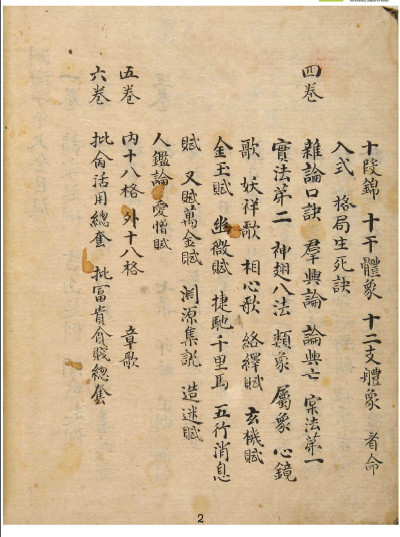 十段錦 十干體象 十二支體象 看命
入式 格局生死訣
四巻 雜論口訣 羣興論 論興亡 寀法苐一
實法苐二 神趐八法 類象 屬象 心鏡
歌 妖祥歌 相心歌 絡繹賦 玄機賦
金玉賦 幽微賦 捷馳千里馬 五行消息
賦 又賦萬金賦 渊源集説 造迷賦
人鑑論 愛憎賦
五巻 内十八格 外十八格 章歌
六巻 批 活用總套 批冨貴貧賤總套
2